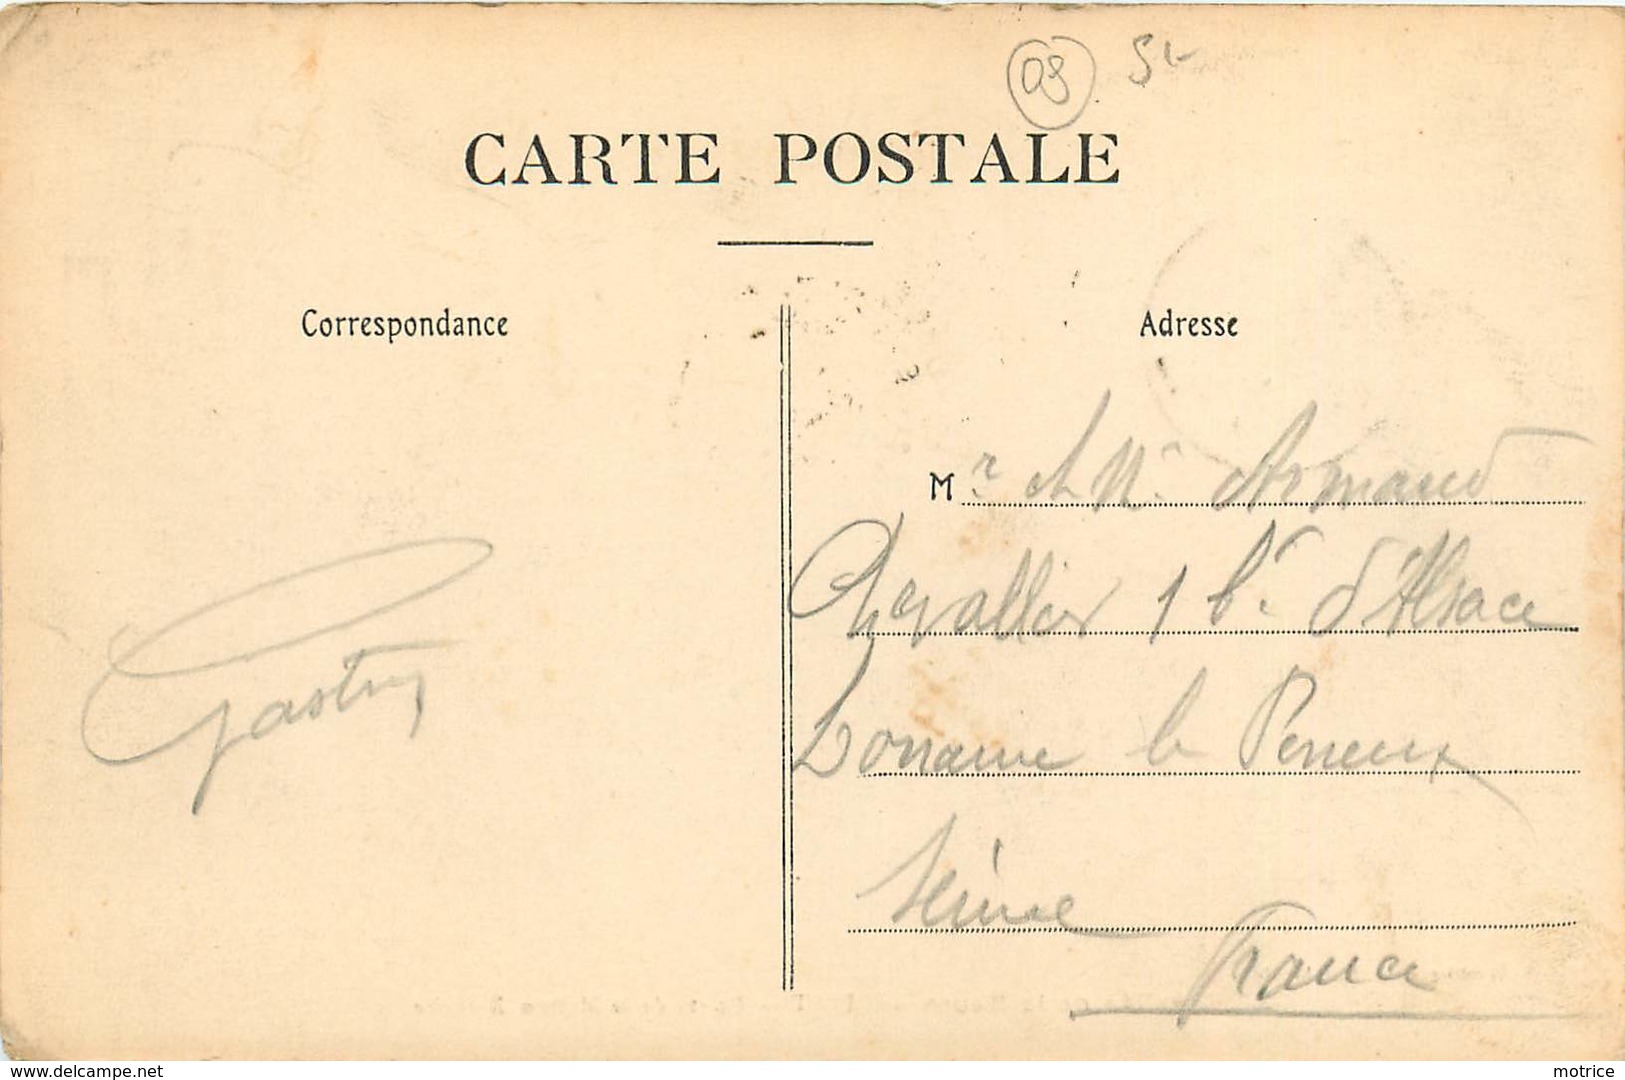 08
CARTE POSTALE
Correspondance
Adresse
Mr et Me Armand
Chevallier 1 bd d'Alsace
Lorraine le Perreux
Seine
France
Gaston
www.delcampe.net
motrice